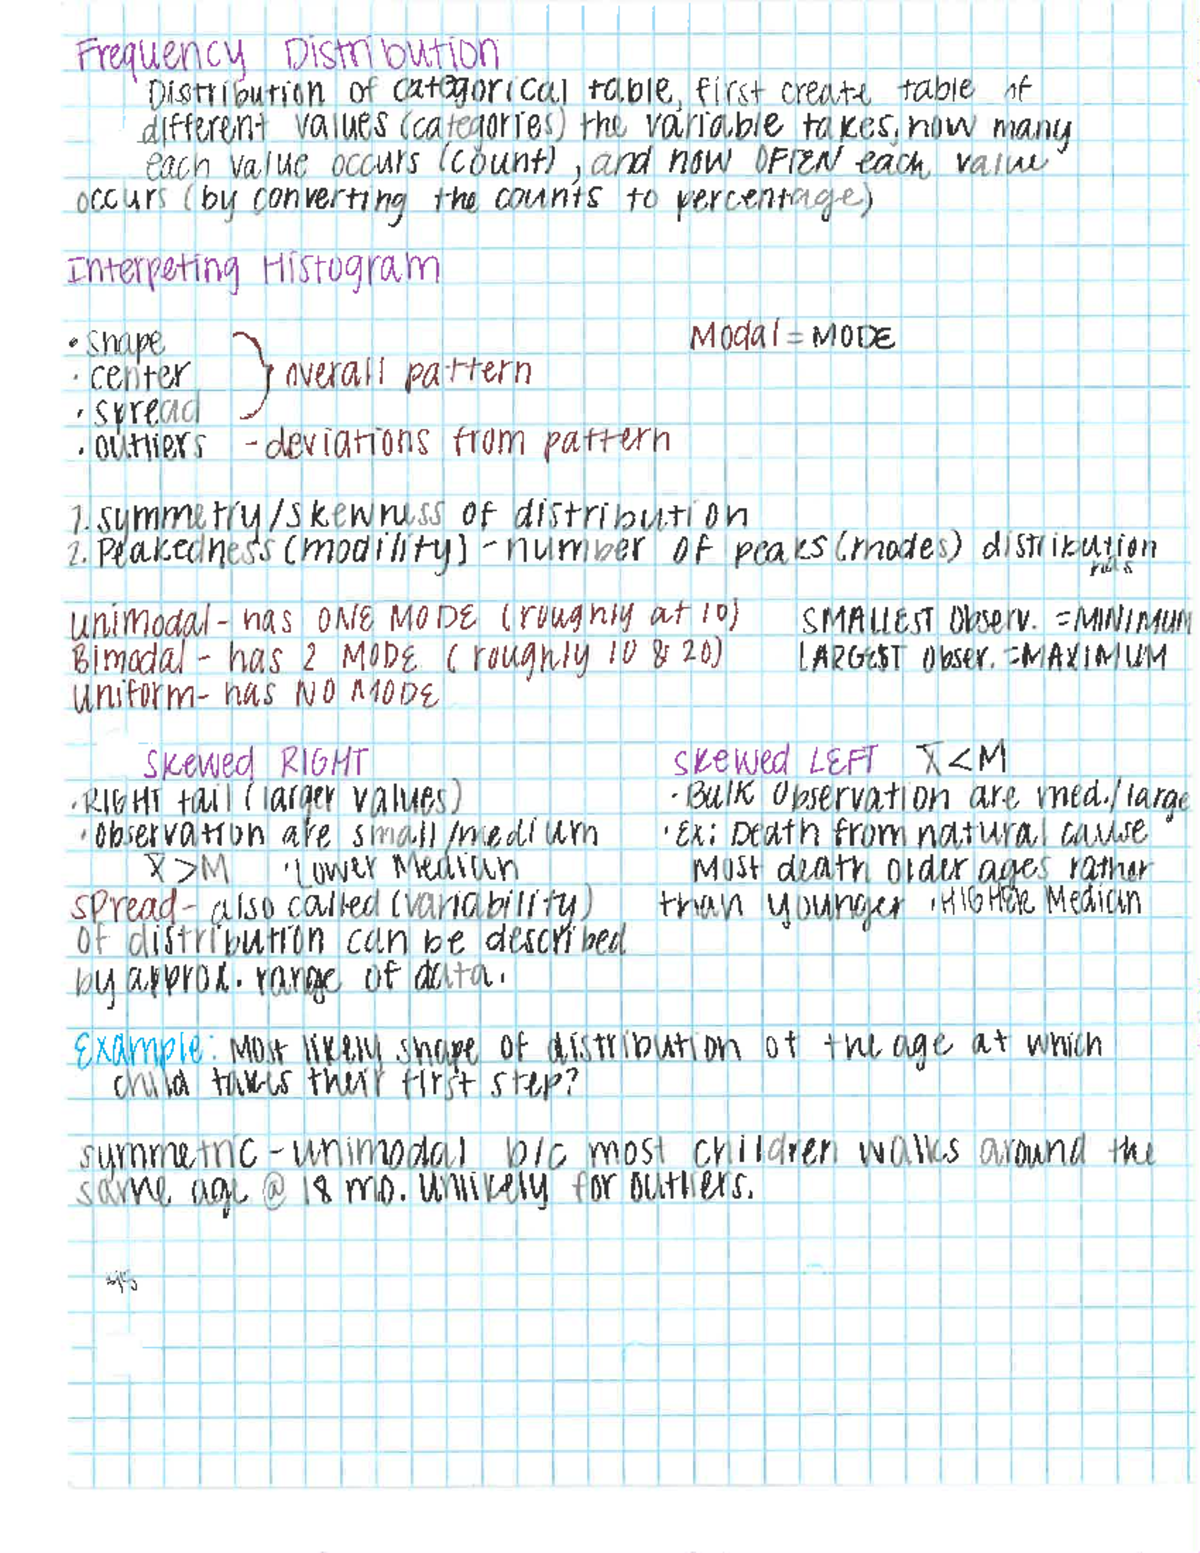 Frequency Distribution
Distribution of categorical table, first create table of
different values (categories) the variable takes, how many
each value occurs (count), and how OFTEN each value
occurs (by converting the counts to percentage)
Interpeting Histogram
• shape
Modal = MODE
• center } overall pattern
• spread
• outliers - deviations from pattern
1. symmetry/skewness of distribution
2. Peakedness (modility) - number of peaks (modes) distribution
has
unimodal - has ONE MODE (roughly at 10)
SMALLEST Observ. = MINIMUM
Bimodal - has 2 MODE (roughly 10 & 20)
LARGEST Obser. = MAXIMUM
uniform - has NO MODE
Skewed RIGHT
Skewed LEFT X̄ < M
• RIGHT tail (larger values)
• Bulk Observation are med./large
• observation are small/medium
• Ex: Death from natural cause
X̄ > M • Lower Median
Most death older ages rather
than younger • HIGHER Median
spread - also called (variability)
of distribution can be described
by approx. range of data.
Example: Most likely shape of distribution of the age at which
child takes their first step?
symmetric - unimodal b/c most children walks around the
same age @ 18 mo. unlikely for outliers.